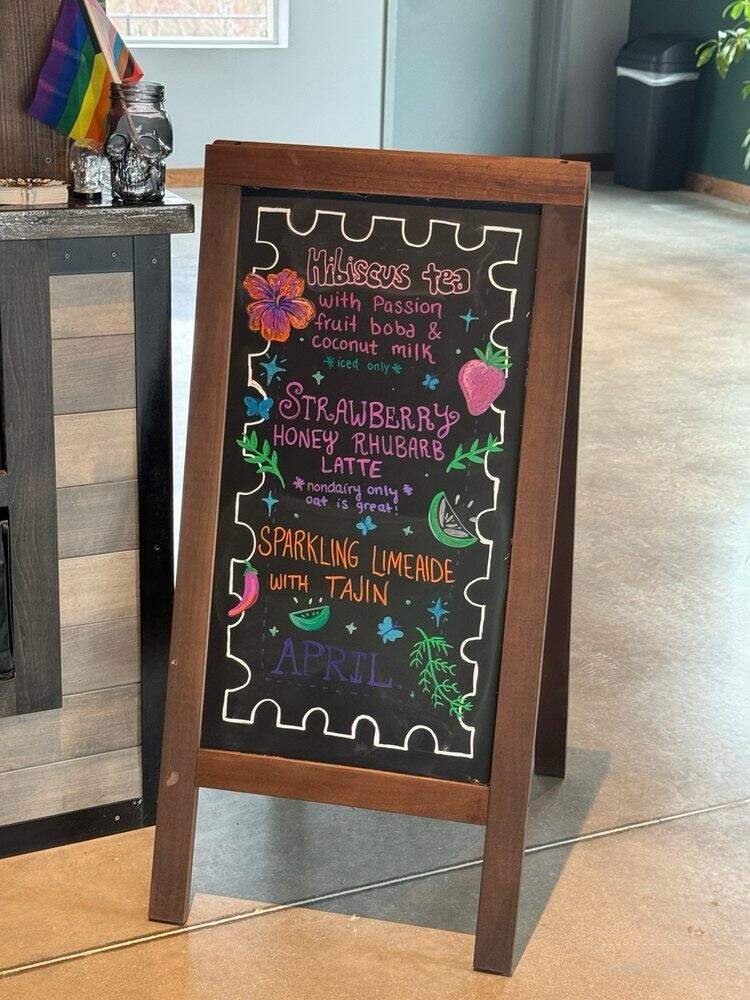 Hibiscus tea
with Passion
fruit boba &
coconut milk
*iced only*
STRAWBERRY
HONEY RHUBARB
LATTE
*nondairy only*
oat is great!
SPARKLING LIMEAIDE
WITH TAJIN
APRIL